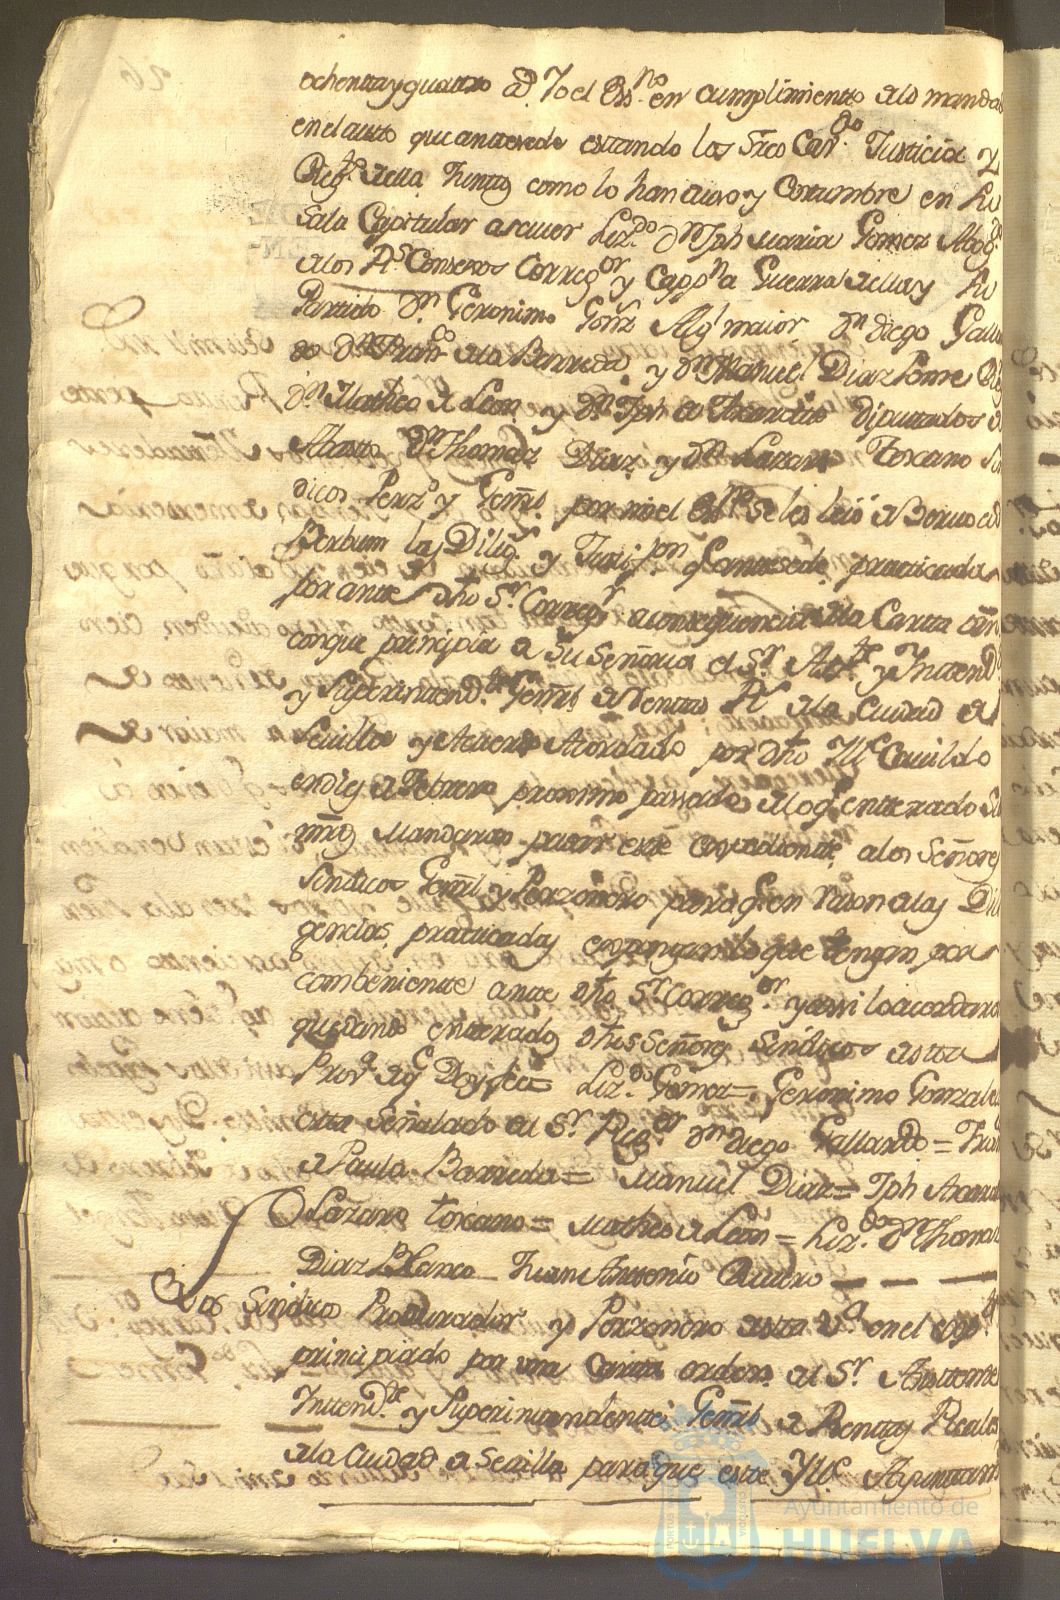 ochenta y quattro a.s Yo el Ess.no en cumplimiento a lo manda
en el auto que antesede estando los S.res Cav.do Justicia y
Reg.to de ella Juntos como lo han de uso y Costumbre en su
Sala Capitular a saver Liz.do d.n Jph Maria Gomez Abog.do
de los R.s Consexos Correg.or y Capp.n a Guerra de ella y su
Partido d.n Geronimo Gonz Alg.l maior d.n diego Galla
do d.n Fran.co de la Barreda, y d.n Manuel Diaz Ponse Re
d.n Matheo de Leon y d.n Jph de diputados de
Abasto d.n Thomas Diaz y d.n Lazaro Toscano Sin
dicos Perz.o y Gen.l por mi el Ess.no se les leió de Bervo ad
Berbum las Dilig.s y Justif.on q.e antesede practicada
por ante dho S.r Correg.r a consequencia de la Carta orn
con que principia de Su Señoria el S.r As.te y Intend.
y Superintend.te Gen.l de Rentas R.s de la Ciudad de
Sevilla y Acuerdo Acordado por dho Ill.e Cavildo
en dies de Febrero proximo passado de lo q.e enterado Su
mrds Mandaron pasar este expediente a los Señores
Sindicos Gen.l y Perzonero para q.e en rason de las Dili
gencias practicadas expongan lo que tengan por
combeniente ante dho S.r Correg.or y assi lo acordaron
quedando enterados dhos Señores Sindicos de esta
Prov.a de q.e Doy fee = Liz.do Gomez = Geronimo Gonzales
esta Señalado del S.r Reg.or d.n diego Gallardo = Fran
de Paula Barreda = Manuel Diaz = Jph
Lazaro toscano = Matheo de Leon = Liz.do d.n Thomas
Diaz Blanco = Juan Antonio
Los Sindico Procurador y Perzonero de esta v.a en el exp.te
principiado por una Carta orden del S.r Assistente
Intend.te y Superintendente Gen.l de Rentas Reales
de la Ciudad de Sevilla para que este Yll.e Ayuntam
Ayuntamiento de
HUELVA